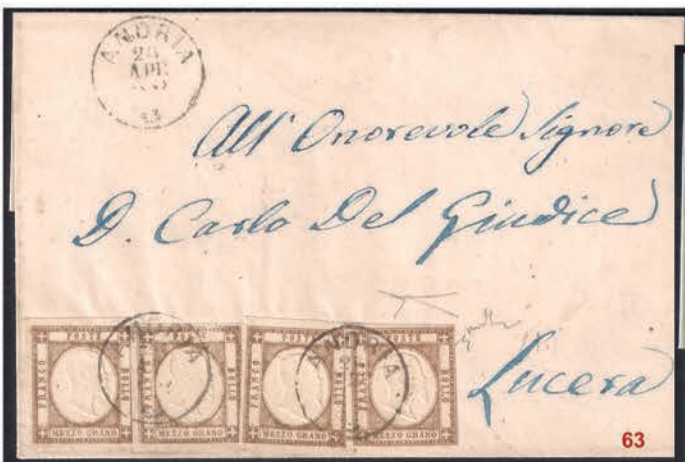 ANDRIA
APR
63
All' Onorevole Signore
D. Carlo Del Giudice
Lucera
FRANCO POSTE BOLLO MEZZO GRANO
FRANCO POSTE BOLLO MEZZO GRANO
FRANCO POSTE BOLLO MEZZO GRANO
FRANCO POSTE BOLLO MEZZO GRANO
ANDRIA
ANDRIA
63